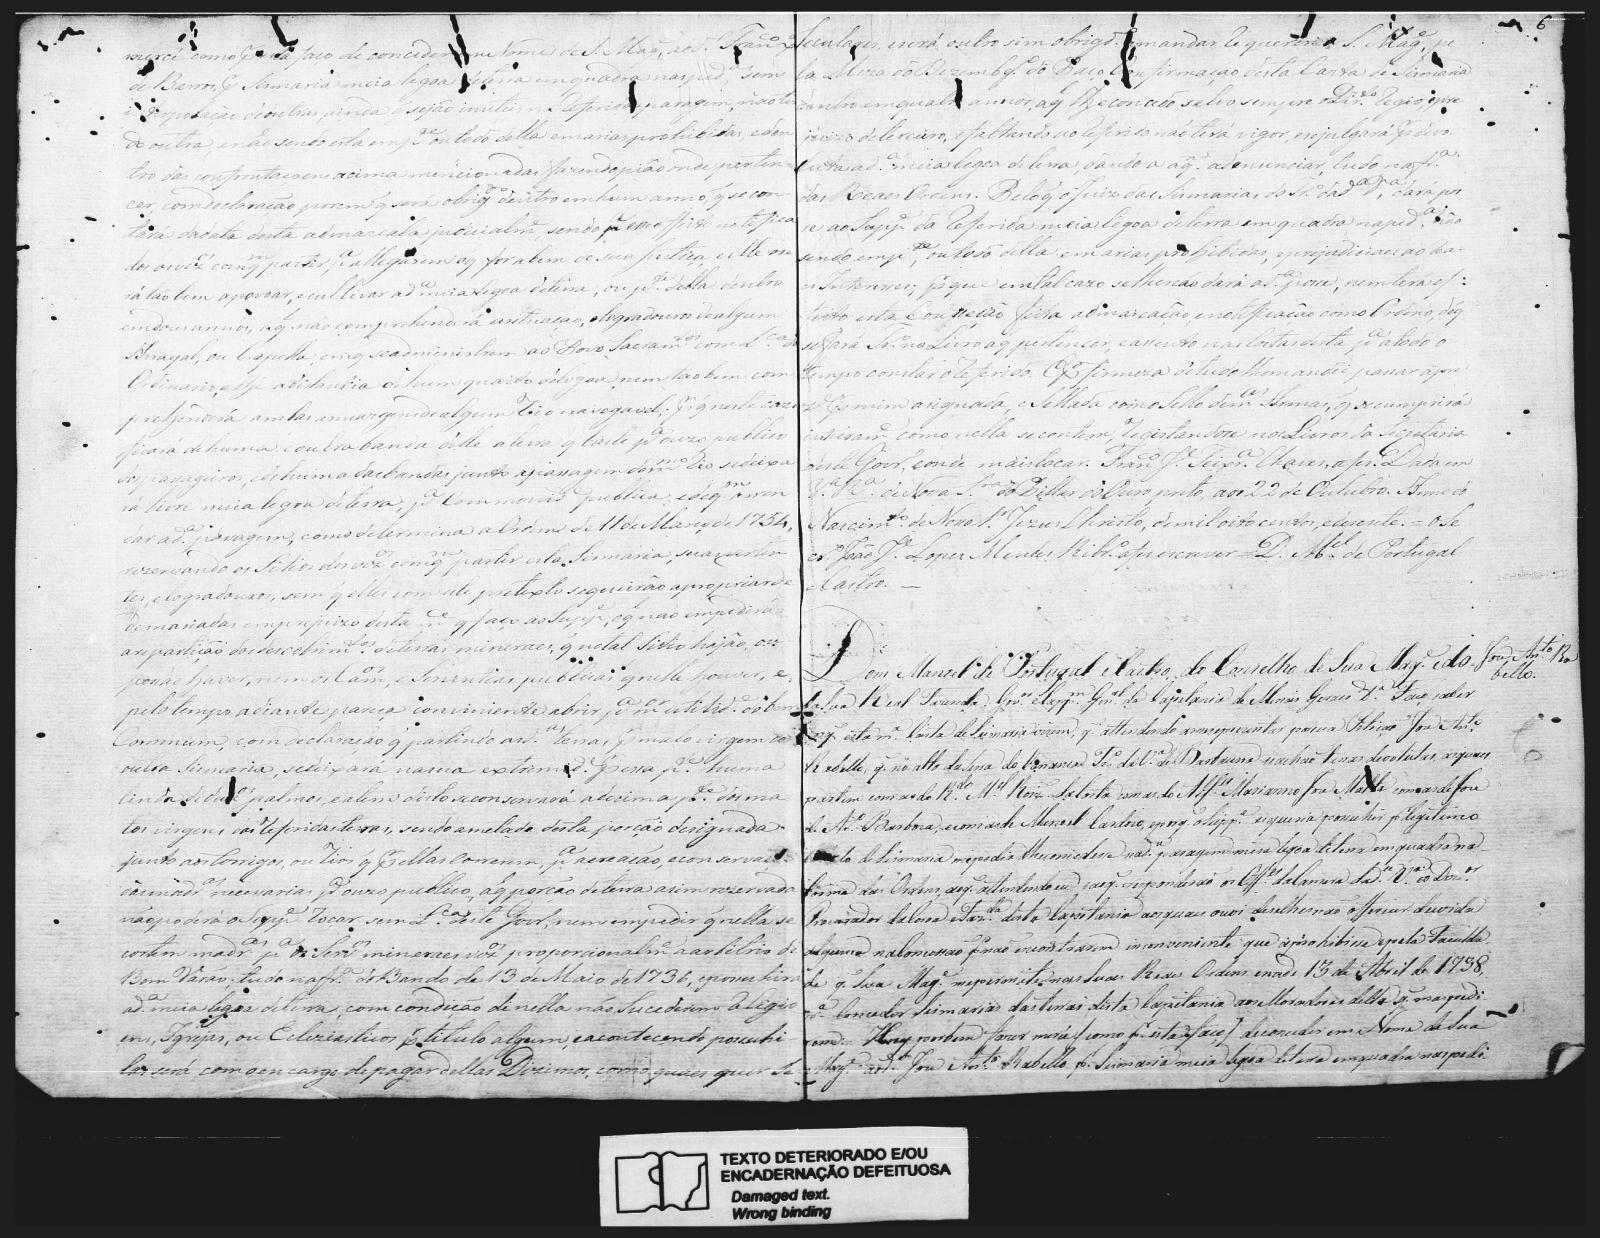 merce como por esta faço de conceder em nome de S. Mag.e ao d.o Fran.co
de Barros por Sesmaria meia legoa de terra em quadra na sped.a sem
interpolação de outras, ainda q sejão inuteis no referido, paragem, não
de outra, e não sendo esta em p.e ou todo della em arias prohibidas, e den
tro das confrontaçoens acima mencionadas fazendo pião onde perten
cer, com declaração porem q será obrig.do dentro em hum anno, q se con
tará da data desta a demarcala judicialm.e, sendo p.a esse effeito notifica
dos os vez.os com q partir p.a allegarem oq for a bem de sua justiça, e elle o se
rá tão bem a povoar, e cultivar a d.a meia legoa de terra, ou p.e della dentro
em dous annos, a q não comprehenderá a situação, e logradouros de algum
Arrayal, ou Capella, em q se administrem ao Povo Sacram.tos com L.ca do
Ordinario, athe a distancia de hum quarto de legoa, nem tão bem com
prehenderá ambas as margens de algum Rio navegavel; porq neste cazo
ficará de huma e outra banda delle a terra q baste p.a o uzo publico
dos passageiros, e de huma das bandas junto a passagem do m.mo Rio se deixa
rá livre meia legoa de terra, p.a commodid.e publica, e de q.m arren
dar a d.a passagem, como determina a Ordem de 11 de Março de 1754,
rezervando os Sitios dos vez.os com q partir esta Sesmaria, suas verten
tes, e logradouros, sem q elles com este pretexto se queirão apropriar de
demasiadas em prejuizo desta m.ce q faço ao Supp.e, o q não empedirá
a repartição dos descobrim.tos de terras mineraes, q no tal Sitio hajão, ou
possão haver, nem os Cam.os, e Serventias publicas q nelle houver, e
pelo tempo adiante pareça conveniente abrir p.a m.or utilid.e do bem
Commum, com declaração q partindo as d.as terras, por mato virgem com
outra Sesmaria, se deixará na sua extremid.e por essa p.e huma
linda de duz.os palmos, e alem disto se conservará a decima p.e dos ma
tos virgens das referidas terras, sendo ametade desta porção designada
junto aos Corrigos, ou Rios, q por ellas correrem, p.a a creação, e conservaç.
das mad.as necessarias p.a o uzo publico, a q porção de terra asim rezervada
não poderá o Supp.e tocar sem L.ca deste Gov.o, nem empedir q nella se
cortem mad.as p.a os serv.os mineraes vez.os proporcionalm.e a arbitrio de
Bom Varão; tudo na fr.a do Bando de 13 de Maio de 1736, e possuhirá
a d.a meia legoa de terra, com condição de nella não sucederem Religio
ens, Igrejas, ou Ecleziasticos por titulo algum, e acontecendo possuhi
las será com o encargo de pagar dellas Dizimos, como quaes quer Se
6
Seculares, e será outro sim obrig.do a mandar requerer a S. Mag.e, pe
la Meza do Dezemb.go do Paço Confirmação desta Carta de Sesmaria
dentro em quatro annos, a q lhe concedo salvo sempre o Dir.to Regio, e pre
juizo de terceiro, e faltando ao referido não terá vigor, e se julgará por devo
luta a d.a meia legoa de terra, dando a a q.m a denunciar, tudo na fr.a
das Reaes Ordens. Pelo q o Juiz das Sesmarias do Tr.o da d.a V.a dará pos
se ao Supp.e da referida meia legoa de terra em quadra na ped.a não
sendo em p.e, ou todo della em arias prohibidas, e prejudiciaes aos Re
es Interesses; porque em tal cazo se lhe não dará a d.a posse, nem terá ef:
feito esta Concessão feita a demarcação, e notificação como Ordeno, do q
se fará Tr.o no Livro a q pertencer, e assento nas costas desta p.a a todo o
tempo constar o referido. E por firmeza de tudo lhe mandei passar a pre
z.e por mim assignada, e Sellada com o Sello de m.as Armas, q se cumprirá
inteiram.e como nella se contem, registandose nos Livros da Secretaria
deste Gov.o, e onde mais tocar. Fran.co J.e Teixr.a Chaves, a fes. Dada em
V.a R.a de Nossa Sr.a do Pillar do Ouro preto, aos 22 de Outubro. Anno do
Nascim.to de Nosso Sr. Jezus Christo, de mil oito centos, e doseste. = O Se
cr.o João J.e Lopes Mendes Ribr.o a fes escrever = D. M.el de Portugal
e Castro. —
Dom Manoel de Portugal e Castro, do Conselho de Sua Mag.e e do
Joze Ant.o Ra
bello.
da Sua Real Fazenda, Gov.or e Capp.m Gn.al da Capitania de Minas Geraes &.a Faço saber
aos q esta m.a Carta de Sesmaria virem, q attendendo a representar por sua Petição Joze Ant.o
Rabello, q no alto da Serra do Tr.o da V.a de Barbacena se achão terras devolutas, as quaes
partem com as do R.do M.el Roiz da Costa com as do Alf.es Marianno com as de Joze
de Ar.o Barboza, e com as de Manoel Castro, e porq o Supp.e as queria possuhir por legitimo
titulo de Sesmaria me pedia lhe concedese na d.a paragem meia legoa de terra em quadra na
forma das Ordens, ao q attendendo eu, e ao q responderão os Off.es da Camera da d.a V.a e o Dez.or
Procurador da Coroa e Faz.da desta Capitania aos quaes ouvi de se lhes não offerecer duvida
alguma na Concessão por não encontrarem inconveniente que a prohibisse, e pela Faculda
de q Sua Mag.e me permitte nas Suas Reaes Ordens e na de 13 de Abril de 1738,
p.a Conceder Sesmarias das terras desta Capitania aos Moradores della q mas pedi
rem: Hey por bem fazer mercê (como por esta faço) de conceder em Nome de Sua
Mag.e ao d.o Joze Ant.o Rabello por Sesmaria meia legoa de terra em quadra na spedi
TEXTO DETERIORADO E/OU
ENCADERNAÇÃO DEFEITUOSA
Damaged text.
Wrong binding